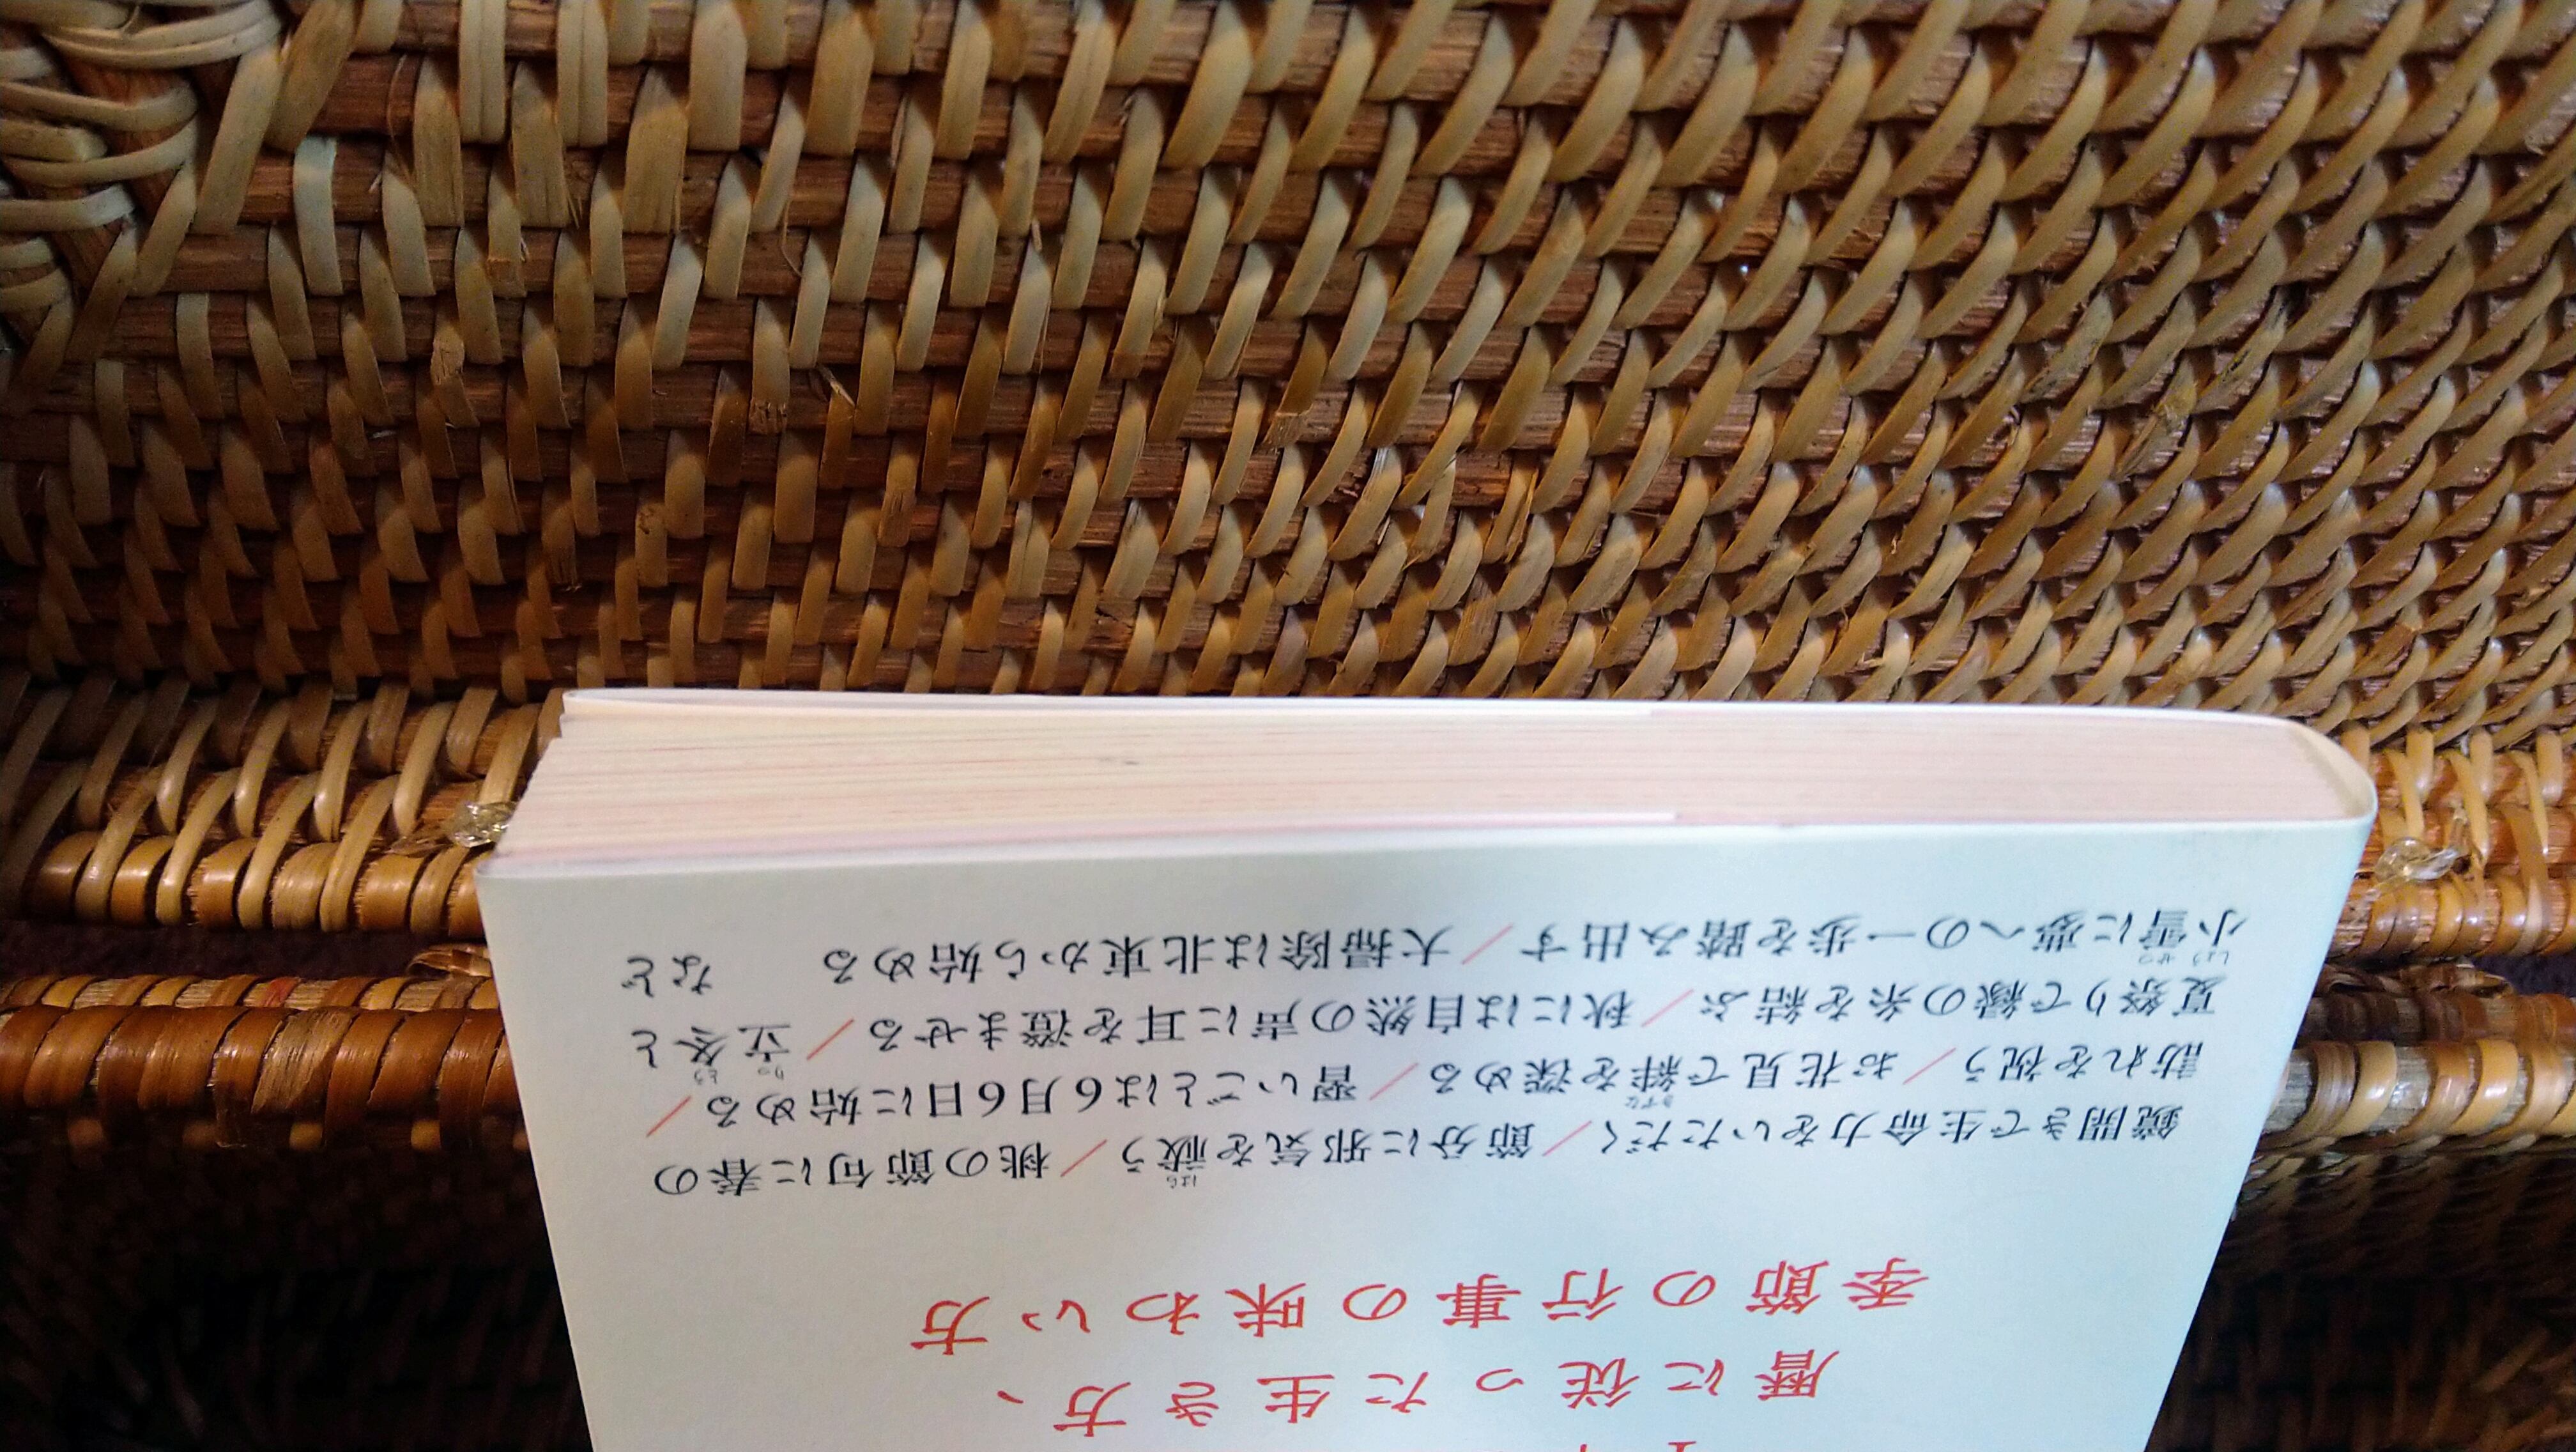 暦に従った生き方、
季節の行事の味わい方
鏡開きで生命力をいただく／節分に邪気を祓う／桃の節句に春の
訪れを祝う／お花見で絆を深める／習いごとは6月6日に始める／
夏祭りで縁の糸を結ぶ／秋には自然の声に耳を澄ませる／立冬と
小雪に夢への一歩を踏み出す／大掃除は北東から始める　など